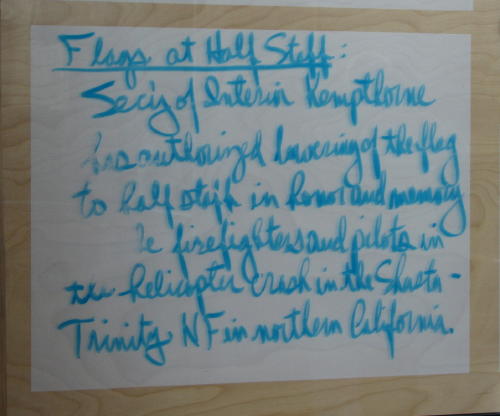 Flags at Half Staff:
Sec'y of Interior Kempthorne
has authorized lowering of the flag
to half staff in honor and memory
firefighters and pilots in
the helicopter crash in the Shasta-
Trinity NF in northern California.